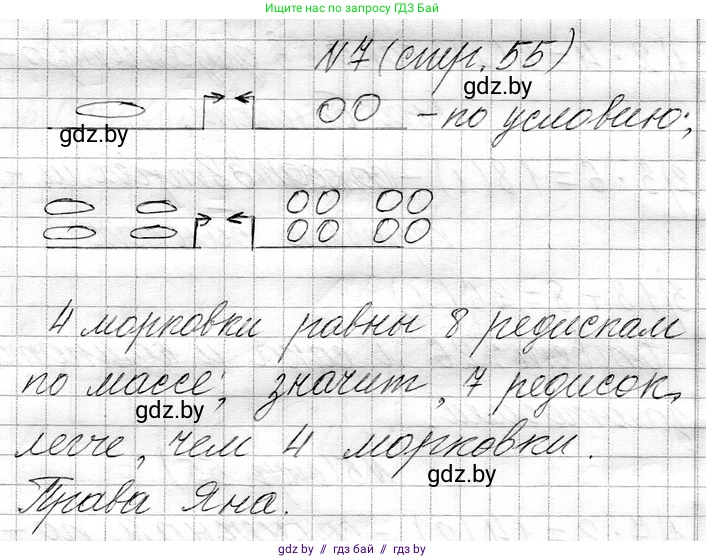 Ищите нас по запросу ГДЗ Бай
N7 (стр. 55)
gdz.by
- по условию;
gdz.by
4 морковки равны 8 редискам
по массе; значит, 7 редисок,
gdz.by
легче, чем 4 морковки.
gdz.by
Права Яна.
gdz.by // гдз бай // gdz.by